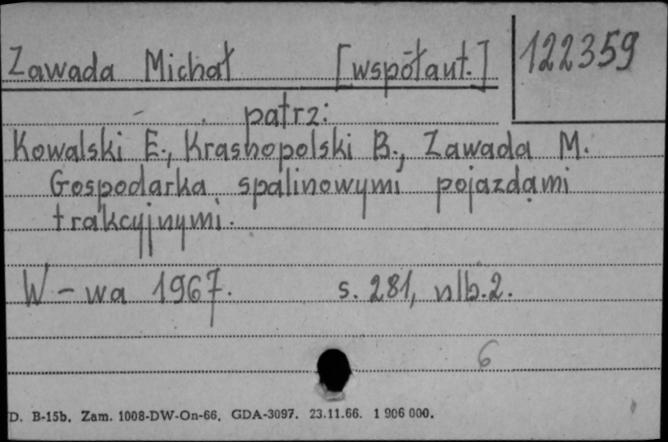 Zawada Michał [współaut.] 122359
patrz:
Kowalski E., Krasnopolski B., Zawada M.
Gospodarka spalinowymi pojazdami
trakcyjnymi.
W-wa 1967. s. 281, nlb. 2.
6
D. B-15b. Zam. 1008-DW-On-66. GDA-3097. 23.11.66. 1 906 000.